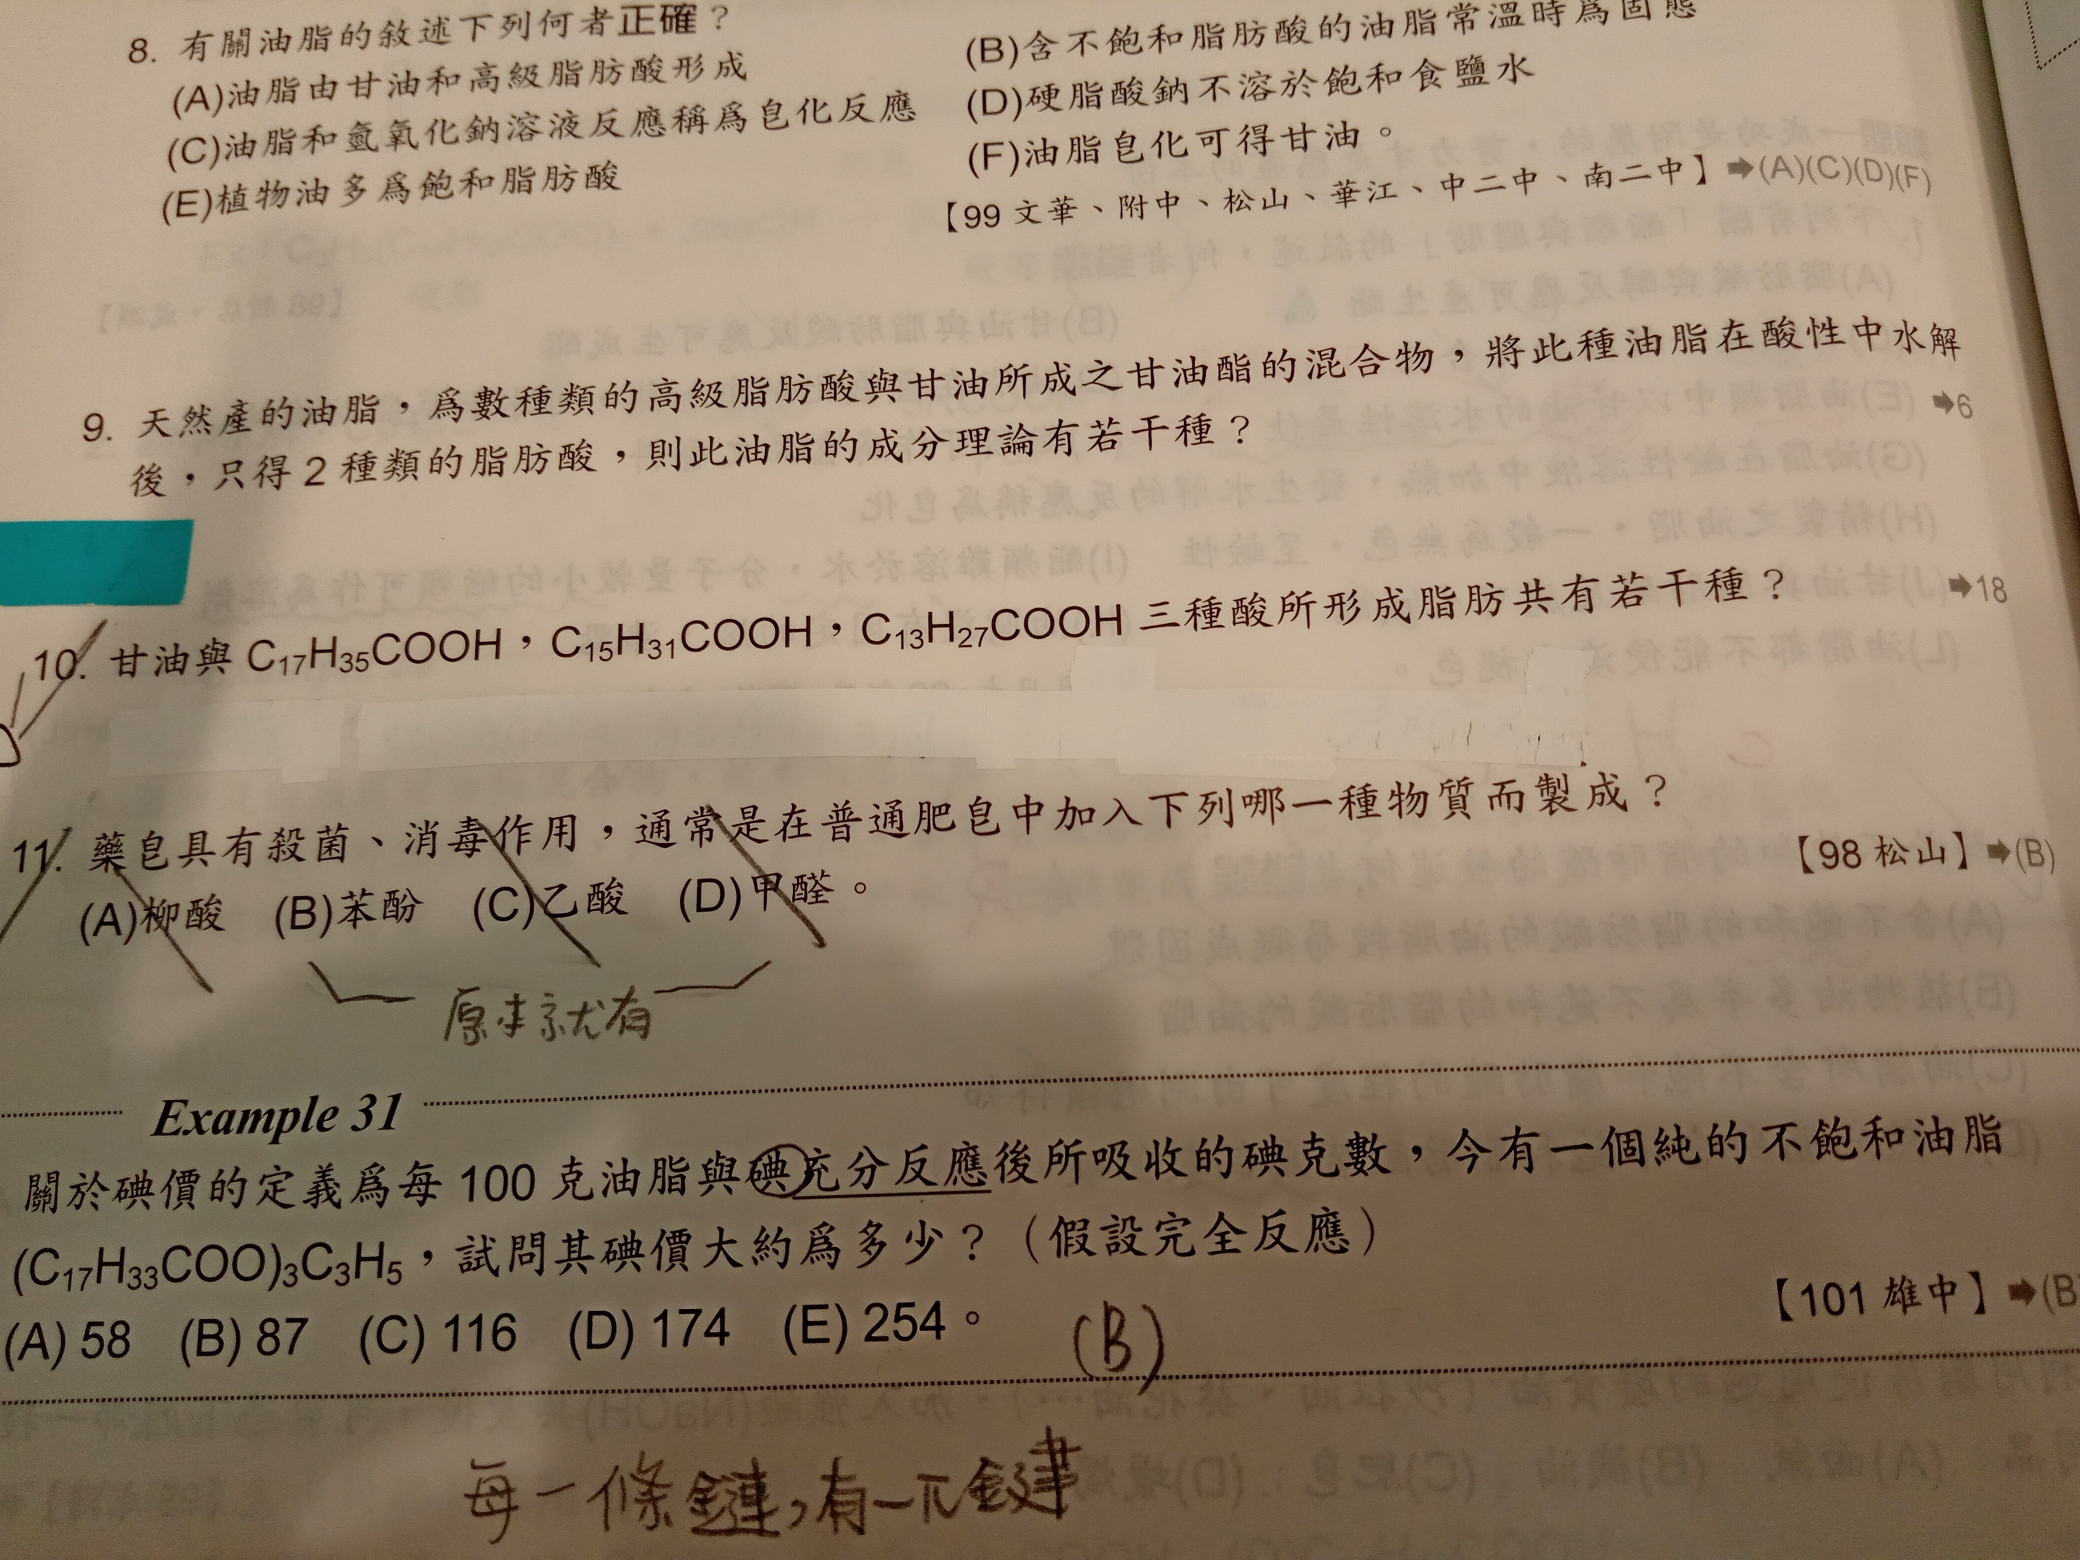 8. 有關油脂的敘述下列何者正確？
(A)油脂由甘油和高級脂肪酸形成
(B)含不飽和脂肪酸的油脂常溫時爲固態
(C)油脂和氫氧化鈉溶液反應稱爲皂化反應
(D)硬脂酸鈉不溶於飽和食鹽水
(E)植物油多爲飽和脂肪酸
(F)油脂皂化可得甘油。
【99 文華、附中、松山、華江、中二中、南二中】➡(A)(C)(D)(F)
9. 天然產的油脂，爲數種類的高級脂肪酸與甘油所成之甘油酯的混合物，將此種油脂在酸性中水解
後，只得 2 種類的脂肪酸，則此油脂的成分理論有若干種？ ➡6
10. 甘油與 C17H35COOH，C15H31COOH，C13H27COOH 三種酸所形成脂肪共有若干種？ ➡18
11. 藥皂具有殺菌、消毒作用，通常是在普通肥皂中加入下列哪一種物質而製成？
(A)柳酸 (B)苯酚 (C)乙酸 (D)甲醛。 【98 松山】➡(B)
原本就有
Example 31
關於碘價的定義爲每 100 克油脂與碘充分反應後所吸收的碘克數，今有一個純的不飽和油脂
(C17H33COO)3C3H5，試問其碘價大約爲多少？（假設完全反應）
(A) 58 (B) 87 (C) 116 (D) 174 (E) 254。 【101 雄中】➡(B
(B)
每一條鏈，有一π鍵